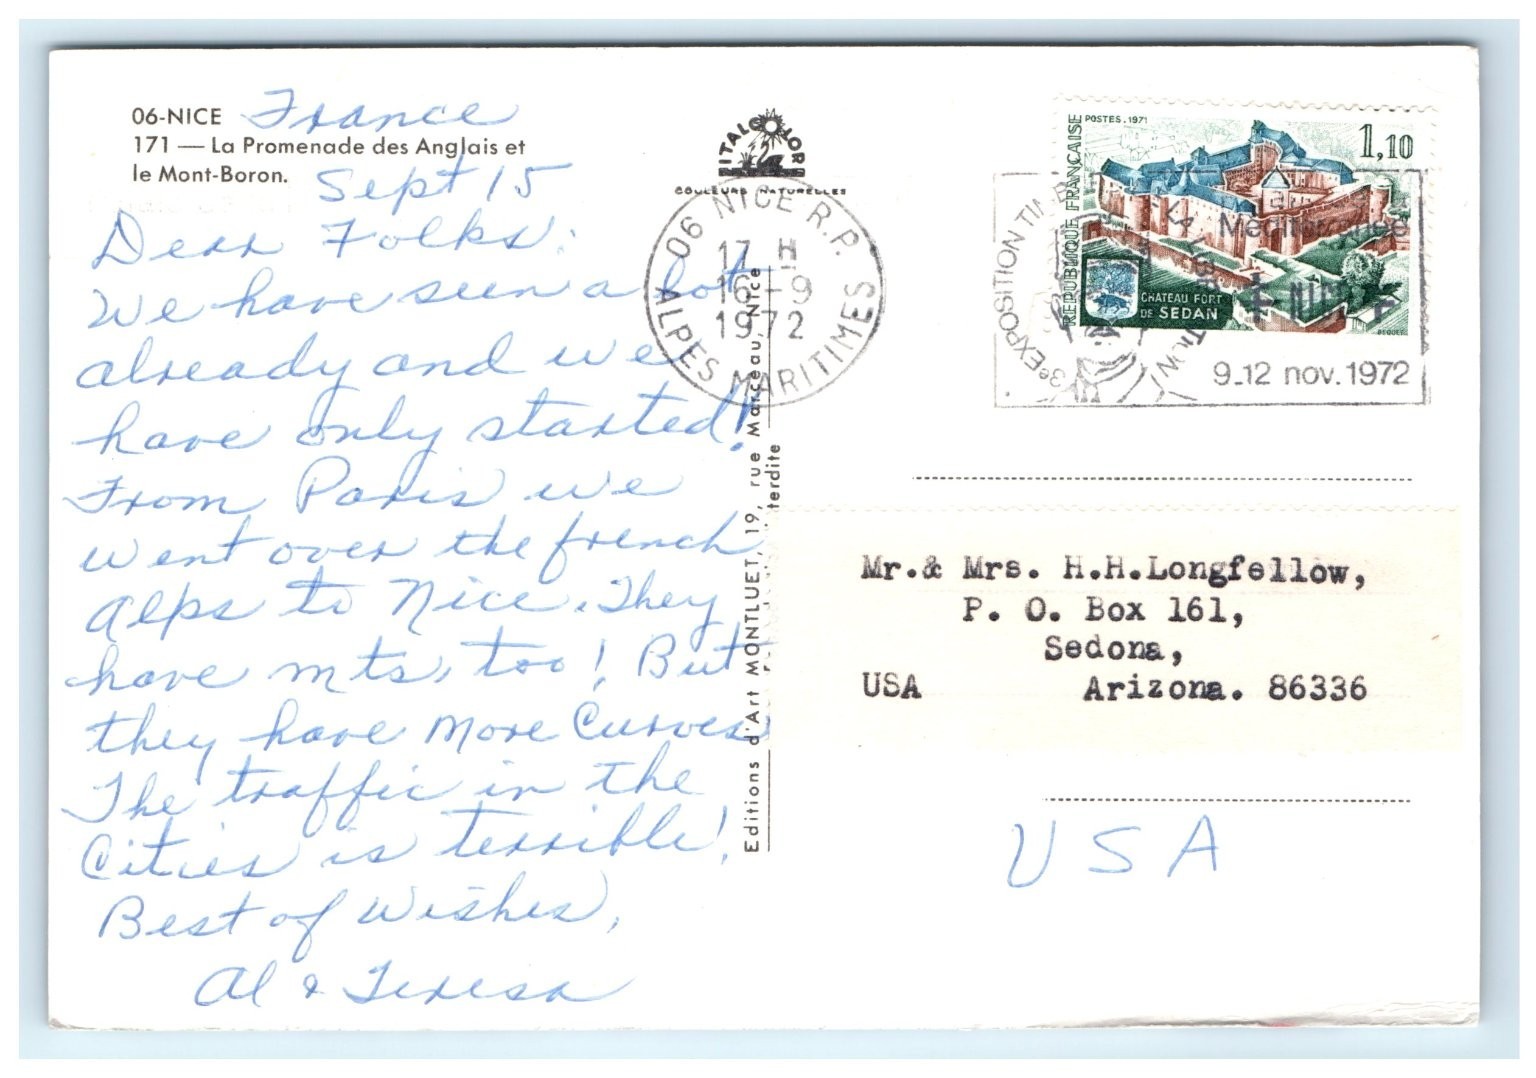 06-NICE France
171 — La Promenade des Anglais et
le Mont-Boron.
Sept 15
Dear Folks:
We have seen a lot
already and we
have only started!
From Paris we
went over the french
alps to Nice. They
have mts, too! But
they have more curves
The traffic in the
Cities is terrible!
Best of Wishes,
Al & Teresa
ITALCOLOR
COULEURS NATURELLES
Editions d'Art MONTLUET, 19, rue Marceau Nice
terdite
06 NICE R.P.
17 H
16-9
1972
ALPES MARITIMES
POSTES.1971
1,10
REPUBLIQUE FRANÇAISE
CHATEAU FORT
DE SEDAN
3e EXPOSITION
Méditerranée
9-12 nov.1972
Mr.& Mrs. H.H.Longfellow,
P. O. Box 161,
Sedona,
USA Arizona. 86336
USA